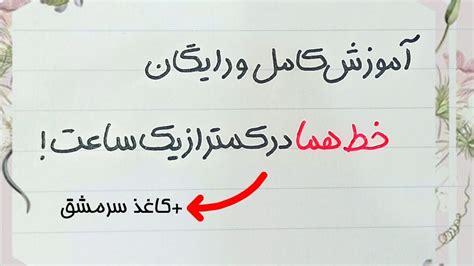 آموزش کامل و رایگان
خط هما در کمتر از یک ساعت!
+کاغذ سرمشق